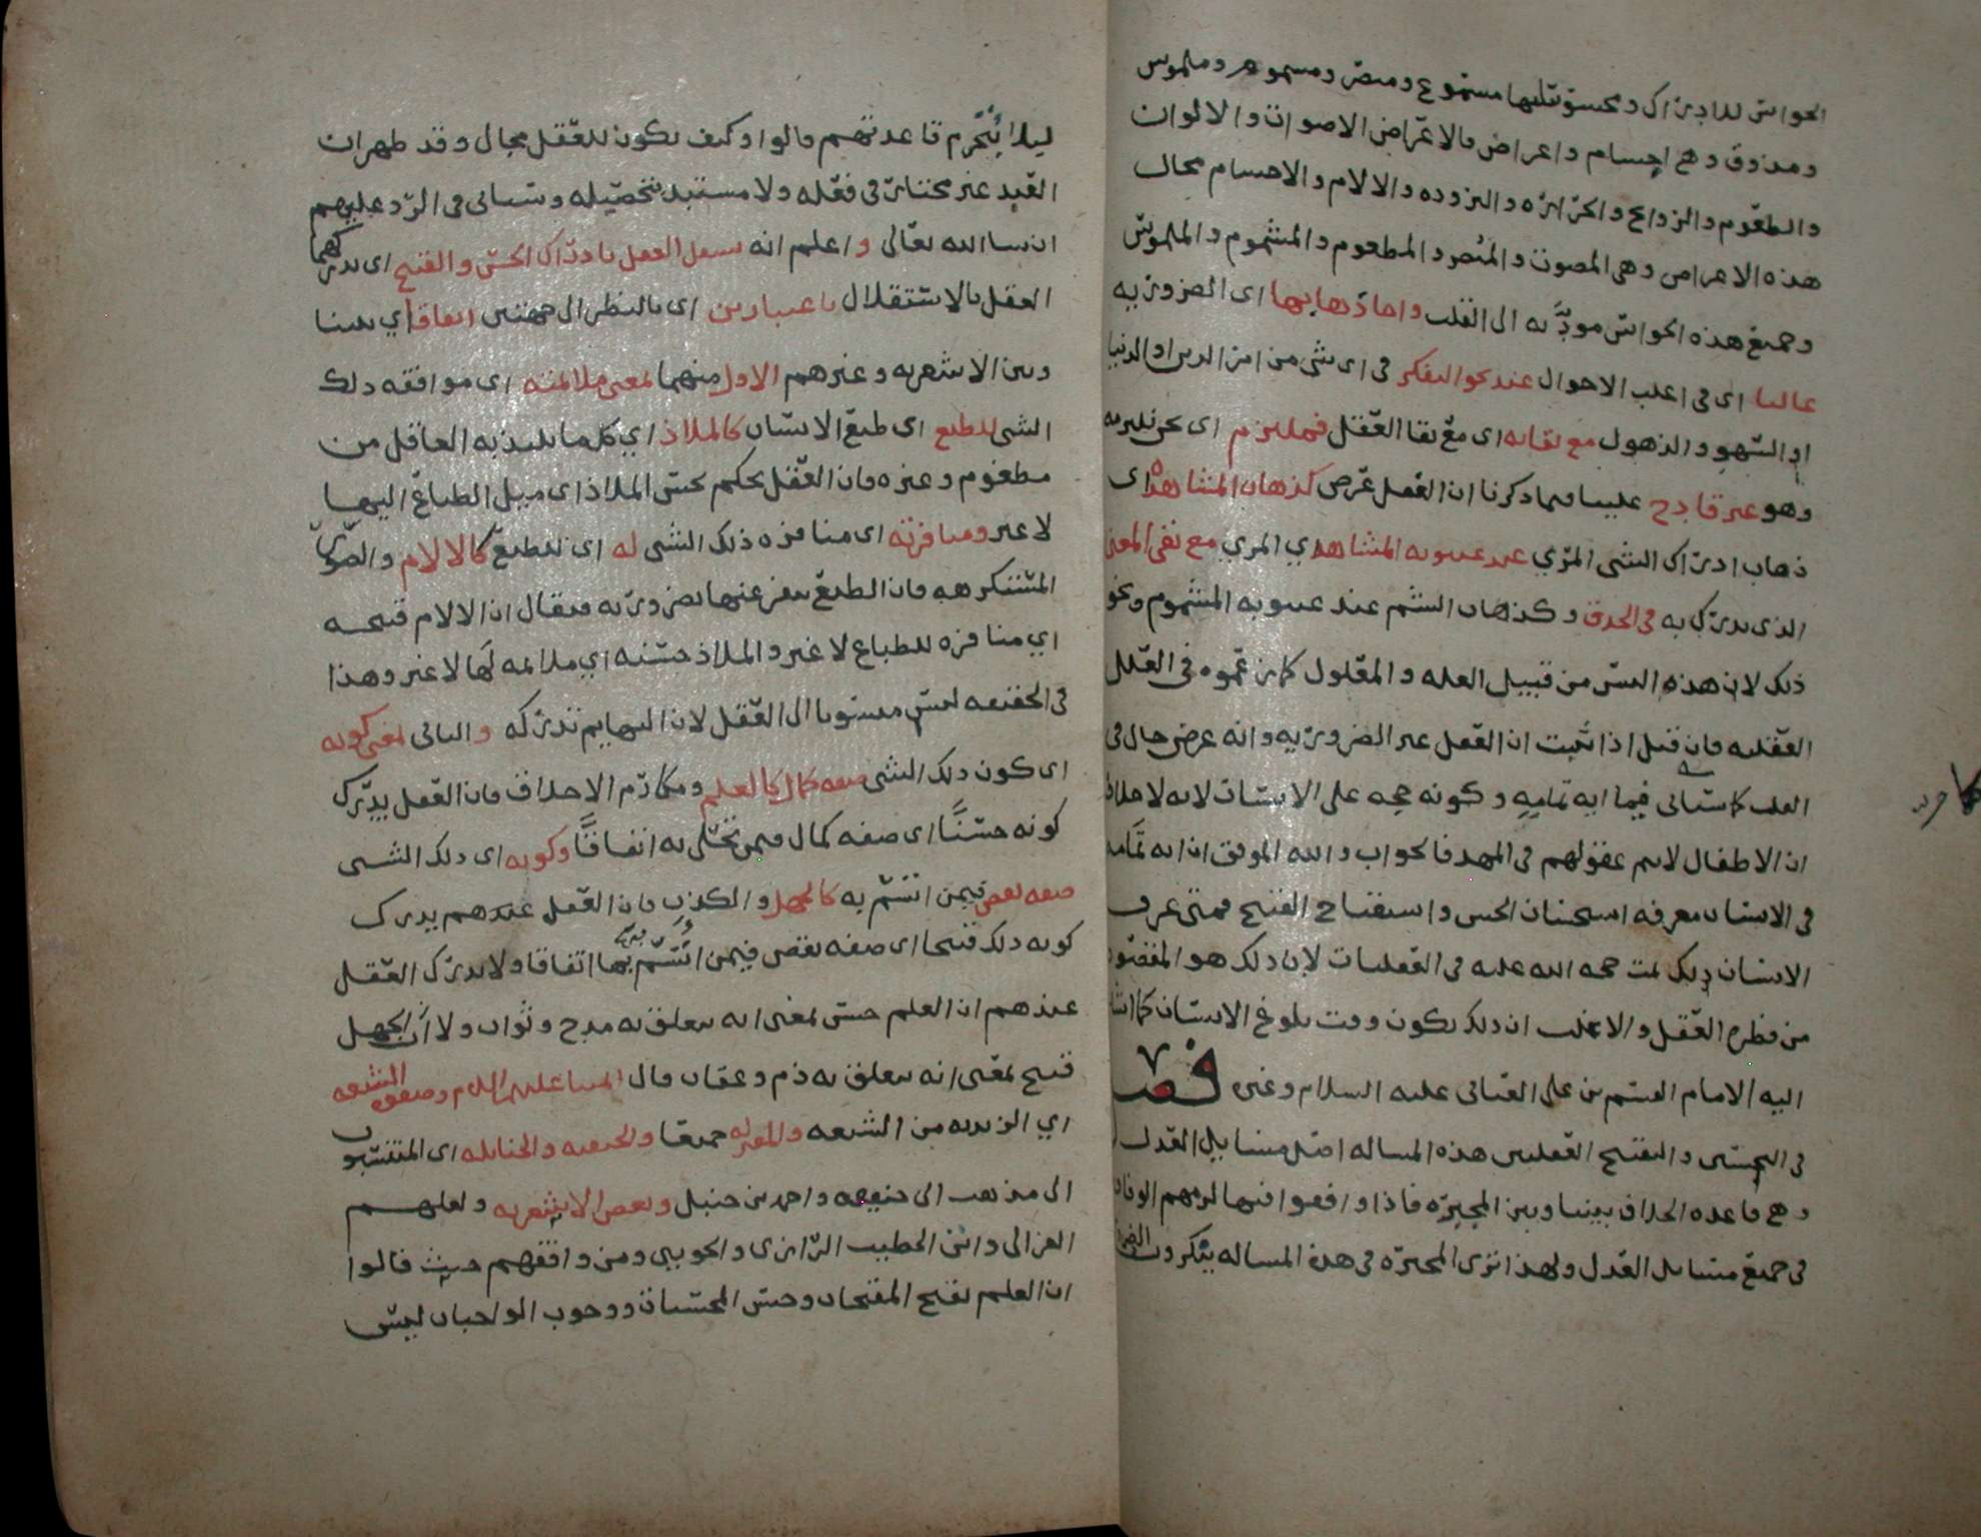 الحواس للادراك ومحسوساتها مسموع ومبصر ومشموم وملموس
ومذوق وهي اجسام واعراض فالاعراض الاصوات والالوان
والطعوم والروائح والحرارة والبرودة والالام والاجسام محال
هذه الاعراض وهي المصوت والمبصر والمطعوم والمشموم والملموس
وجميع هذه الحواس مودية الى القلب واما ذهابها اي الضرورية
غالبا اي في اغلب الاحوال عند نحو التفكر في اي شي من امر الدين او الدنيا
او السهو والذهول مع بقائه اي مع بقا العقل فملتزم اي نحن نلتزمه
وهو غير قادح علينا فيما ذكرنا ان العقل عرض كذهاب المشاهدة اي
ذهاب ادراك الشي المري عند غيبوبة المشاهد اي المري مع نفي المعنى
الذي يدرك به في الحدق وكذهاب الشم عند غيبوبة المشموم ونحو
ذلك لان هذه ليس من قبيل العلة والمعلول كما زعموه في العلل
العقلية فان قيل اذا ثبت ان العقل غير الضرورية وانه عرض حال في
القلب كما سياتي فيما اية تمامه وكونه حجة على الانسان لانه لا خلاف
ان الاطفال لا يتم عقولهم في المهد فالجواب والله الموفق ان اية تمامه
في الانسان معرفة استحسان الحسن واستقباح القبيح فمتى عرف
الانسان ذلك تمت حجة الله عليه في العقليات لان ذلك هو المقصود
من فطرة العقل والاغلب ان ذلك يكون وقت بلوغ الانسان كما اشار
اليه الامام القسم بن علي العياني عليه السلام وغيره فصل
في التحسين والتقبيح العقليين هذه المسالة اصل مسايل العدل
وهي قاعدة الخلاف بيننا وبين المجبرة فاذا وافقوا فيها لزمهم الوفاق
في جميع مسايل العدل ولهذا ترى المجبرة في هذه المسالة ينكرون
ليلا يتخرم قاعدتهم قالوا وكيف يكون للعقل مجال وقد ظهر ان
العبد غير مختار في فعله ولا مستبد بتحصيله وسياتي في الرد عليهم
ان شا الله تعالى واعلم انه يستقل العقل بادراك الحسن والقبح اي يدركهما
العقل بالاستقلال باعتبارين اي بالنظر الى جهتين اتفاقا اي بيننا
وبين الاشعرية وغيرهم الاول منهما بمعنى ملائمته اي موافقة ذلك
الشي للطبع اي طبع الانسان كالملاذ اي كلما يلتذ به العاقل من
مطعوم وغيره فان العقل يحكم بحسن الملاذ اي ميل الطباع اليها
لا غير ومنافرته اي منافرة ذلك الشي له اي للطبع كالالام والصور
المستنكرهه فان الطبع ينفر عنها بضرورته فيقال ان الالام قبيحة
اي منافرة للطباع لا غير والملاذ حسنة اي ملائمة لها لا غير وهذا
في الحقيقة ليس منسوبا الى العقل لان البهايم تدركه والثاني بمعنى كونه
اي كون ذلك الشي صفة كمال كالعلم ومكارم الاخلاق فان العقل يدرك
كونه حسنًا اي صفة كمال فيمن تحلى به اتفاقًا وكونه اي ذلك الشي
صفة نقص فيمن اتسم به كالجهل والكذب فان العقل عندهم يدرك
كونه ذلك قبيحا اي صفة نقص فيمن اتسم بها اتفاقا ولا يدرك العقل
عندهم ان العلم حسن بمعنى انه يتعلق به مدح وثواب ولا ان الجهل
قبيح بمعنى انه يتعلق به ذم وعقاب قال ايمتنا عليهم السلام وصفوة الشيعة
اي الزيدية من الشيعة والمعتزلة جميعا والحنفية والحنابلة اي المنتسبون
الى مذهب ابي حنيفة واحمد بن حنبل وبعض الاشعرية ولعلهم
الغزالي وابن الخطيب الرازي والجويني ومن وافقهم حيث قالوا
ان العلم بقبح المقبحات وحسن المحسنات ووجوب الواجبات ليس